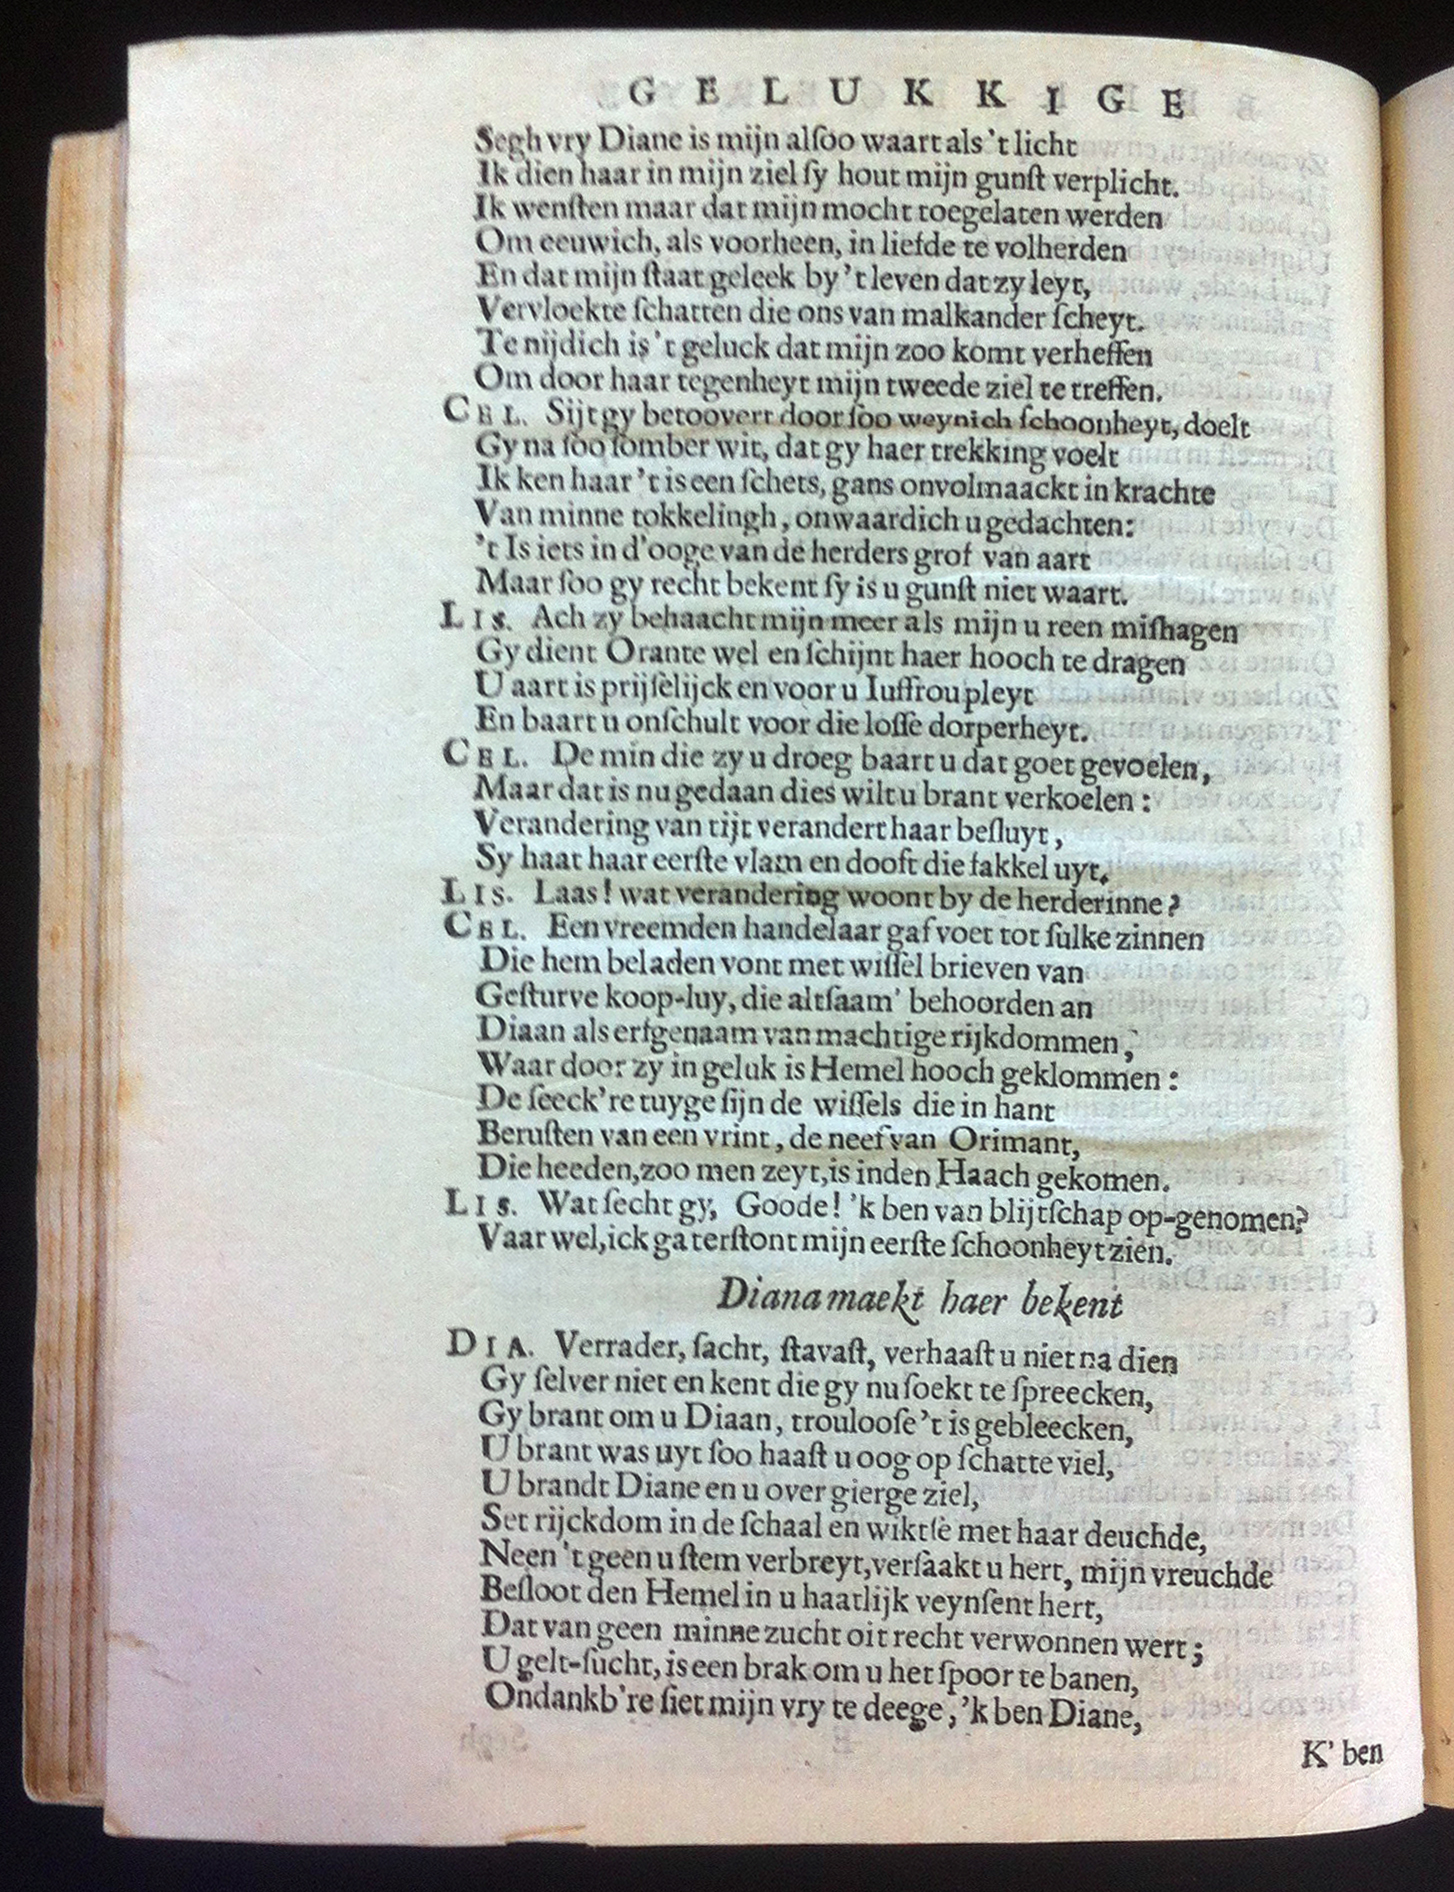 GELUKKIGE
Segh vry Diane is mijn alſoo waart als 't licht
Ik dien haar in mijn ziel ſy hout mijn gunſt verplicht.
Ik wenſten maar dat mijn mocht toegelaten werden
Om eeuwich, als voorheen, in liefde te volherden
En dat mijn ſtaat geleek by 't leven dat zy leyt,
Vervloekte ſchatten die ons van malkander ſcheyt.
Te nijdich is 't geluck dat mijn zoo komt verheffen
Om door haar tegenheyt mijn tweede ziel te treffen.
CEL. Sijt gy betoovert door ſoo weynich ſchoonheyt, doelt
Gy na ſoo ſomber wit, dat gy haer trekking voelt
Ik ken haar 't is een ſchets, gans onvolmaackt in krachte
Van minne tokkelingh, onwaardich u gedachten:
't Is iets in d'ooge van de herders grof van aart
Maar ſoo gy recht bekent ſy is u gunſt niet waart.
LIS. Ach zy behaacht mijn meer als mijn u reen miſhagen
Gy dient Orante wel en ſchijnt haer hooch te dragen
U aart is prijſelijck en voor u Iuffrou pleyt
En baart u onſchult voor die loſſe dorperheyt.
CEL. De min die zy u droeg baart u dat goet gevoelen,
Maar dat is nu gedaan dies wilt u brant verkoelen:
Verandering van tijt verandert haar beſluyt,
Sy haat haar eerſte vlam en dooft die fakkel uyt.
LIS. Laas! wat verandering woont by de herderinne?
CEL. Een vreemden handelaar gaf voet tot ſulke zinnen
Die hem beladen vont met wiſſel brieven van
Geſturve koop-luy, die altſaam' behoorden an
Diaan als erfgenaam van machtige rijkdommen,
Waar door zy in geluk is Hemel hooch geklommen:
De ſeeck're tuyge ſijn de wiſſels die in hant
Beruſten van een vrint, de neef van Orimant,
Die heeden, zoo men zeyt, is inden Haach gekomen.
LIS. Wat ſecht gy, Goode! 'k ben van blijtſchap op-genomen?
Vaar wel, ick ga terſtont mijn eerſte ſchoonheyt zien.
Diana maekt haer bekent
DIA. Verrader, ſacht, ſtavaſt, verhaaſt u niet na dien
Gy ſelver niet en kent die gy nu ſoekt te ſpreecken,
Gy brant om u Diaan, trouloofe 't is gebleecken,
U brant was uyt ſoo haaſt u oog op ſchatte viel,
U brandt Diane en u over gierge ziel,
Set rijckdom in de ſchaal en wiktſe met haar deuchde,
Neen 't geen u ſtem verbreyt, verſaakt u hert, mijn vreuchde
Beſloot den Hemel in u haatlijk veynſent hert,
Dat van geen minne zucht oit recht verwonnen wert;
U gelt-ſucht, is een brak om u het ſpoor te banen,
Ondankb're ſiet mijn vry te deege, 'k ben Diane,
K' ben